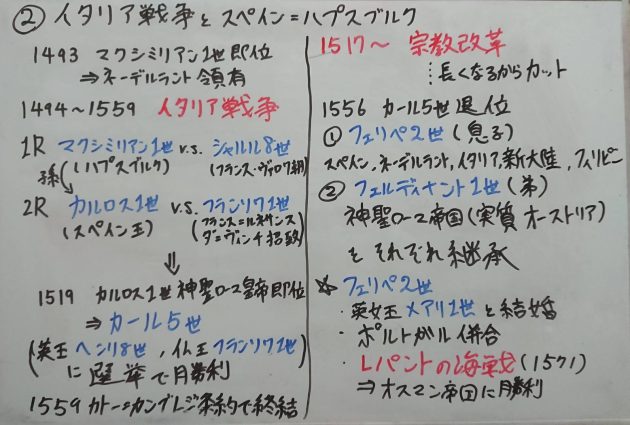 ② イタリア戦争とスペイン=ハプスブルク
1493 マクシミリアン1世即位
⇒ネーデルラント領有
1494〜1559 イタリア戦争
1R マクシミリアン1世 v.s. シャルル8世
孫 (ハプスブルク) (フランス・ヴァロワ朝)
2R カルロス1世 v.s. フランソワ1世
(スペイン王) (フランス=ルネサンス
ダ=ヴィンチ招致)
⇓
1519 カルロス1世神聖ローマ皇帝即位
⇒ カール5世
(英王ヘンリ8世, 仏王フランソワ1世)
に選挙で勝利
1559 カトー=カンブレジ条約で終結
1517〜 宗教改革
…長くなるからカット
1556 カール5世退位
① フェリペ2世(息子)
スペイン, ネーデルラント, イタリア, 新大陸, フィリピン
② フェルディナント1世(弟)
神聖ローマ帝国(実質オーストリア)
をそれぞれ継承
☆ フェリペ2世
・英女王メアリ1世と結婚
・ポルトガル併合
・レパントの海戦(1571)
⇒オスマン帝国に勝利